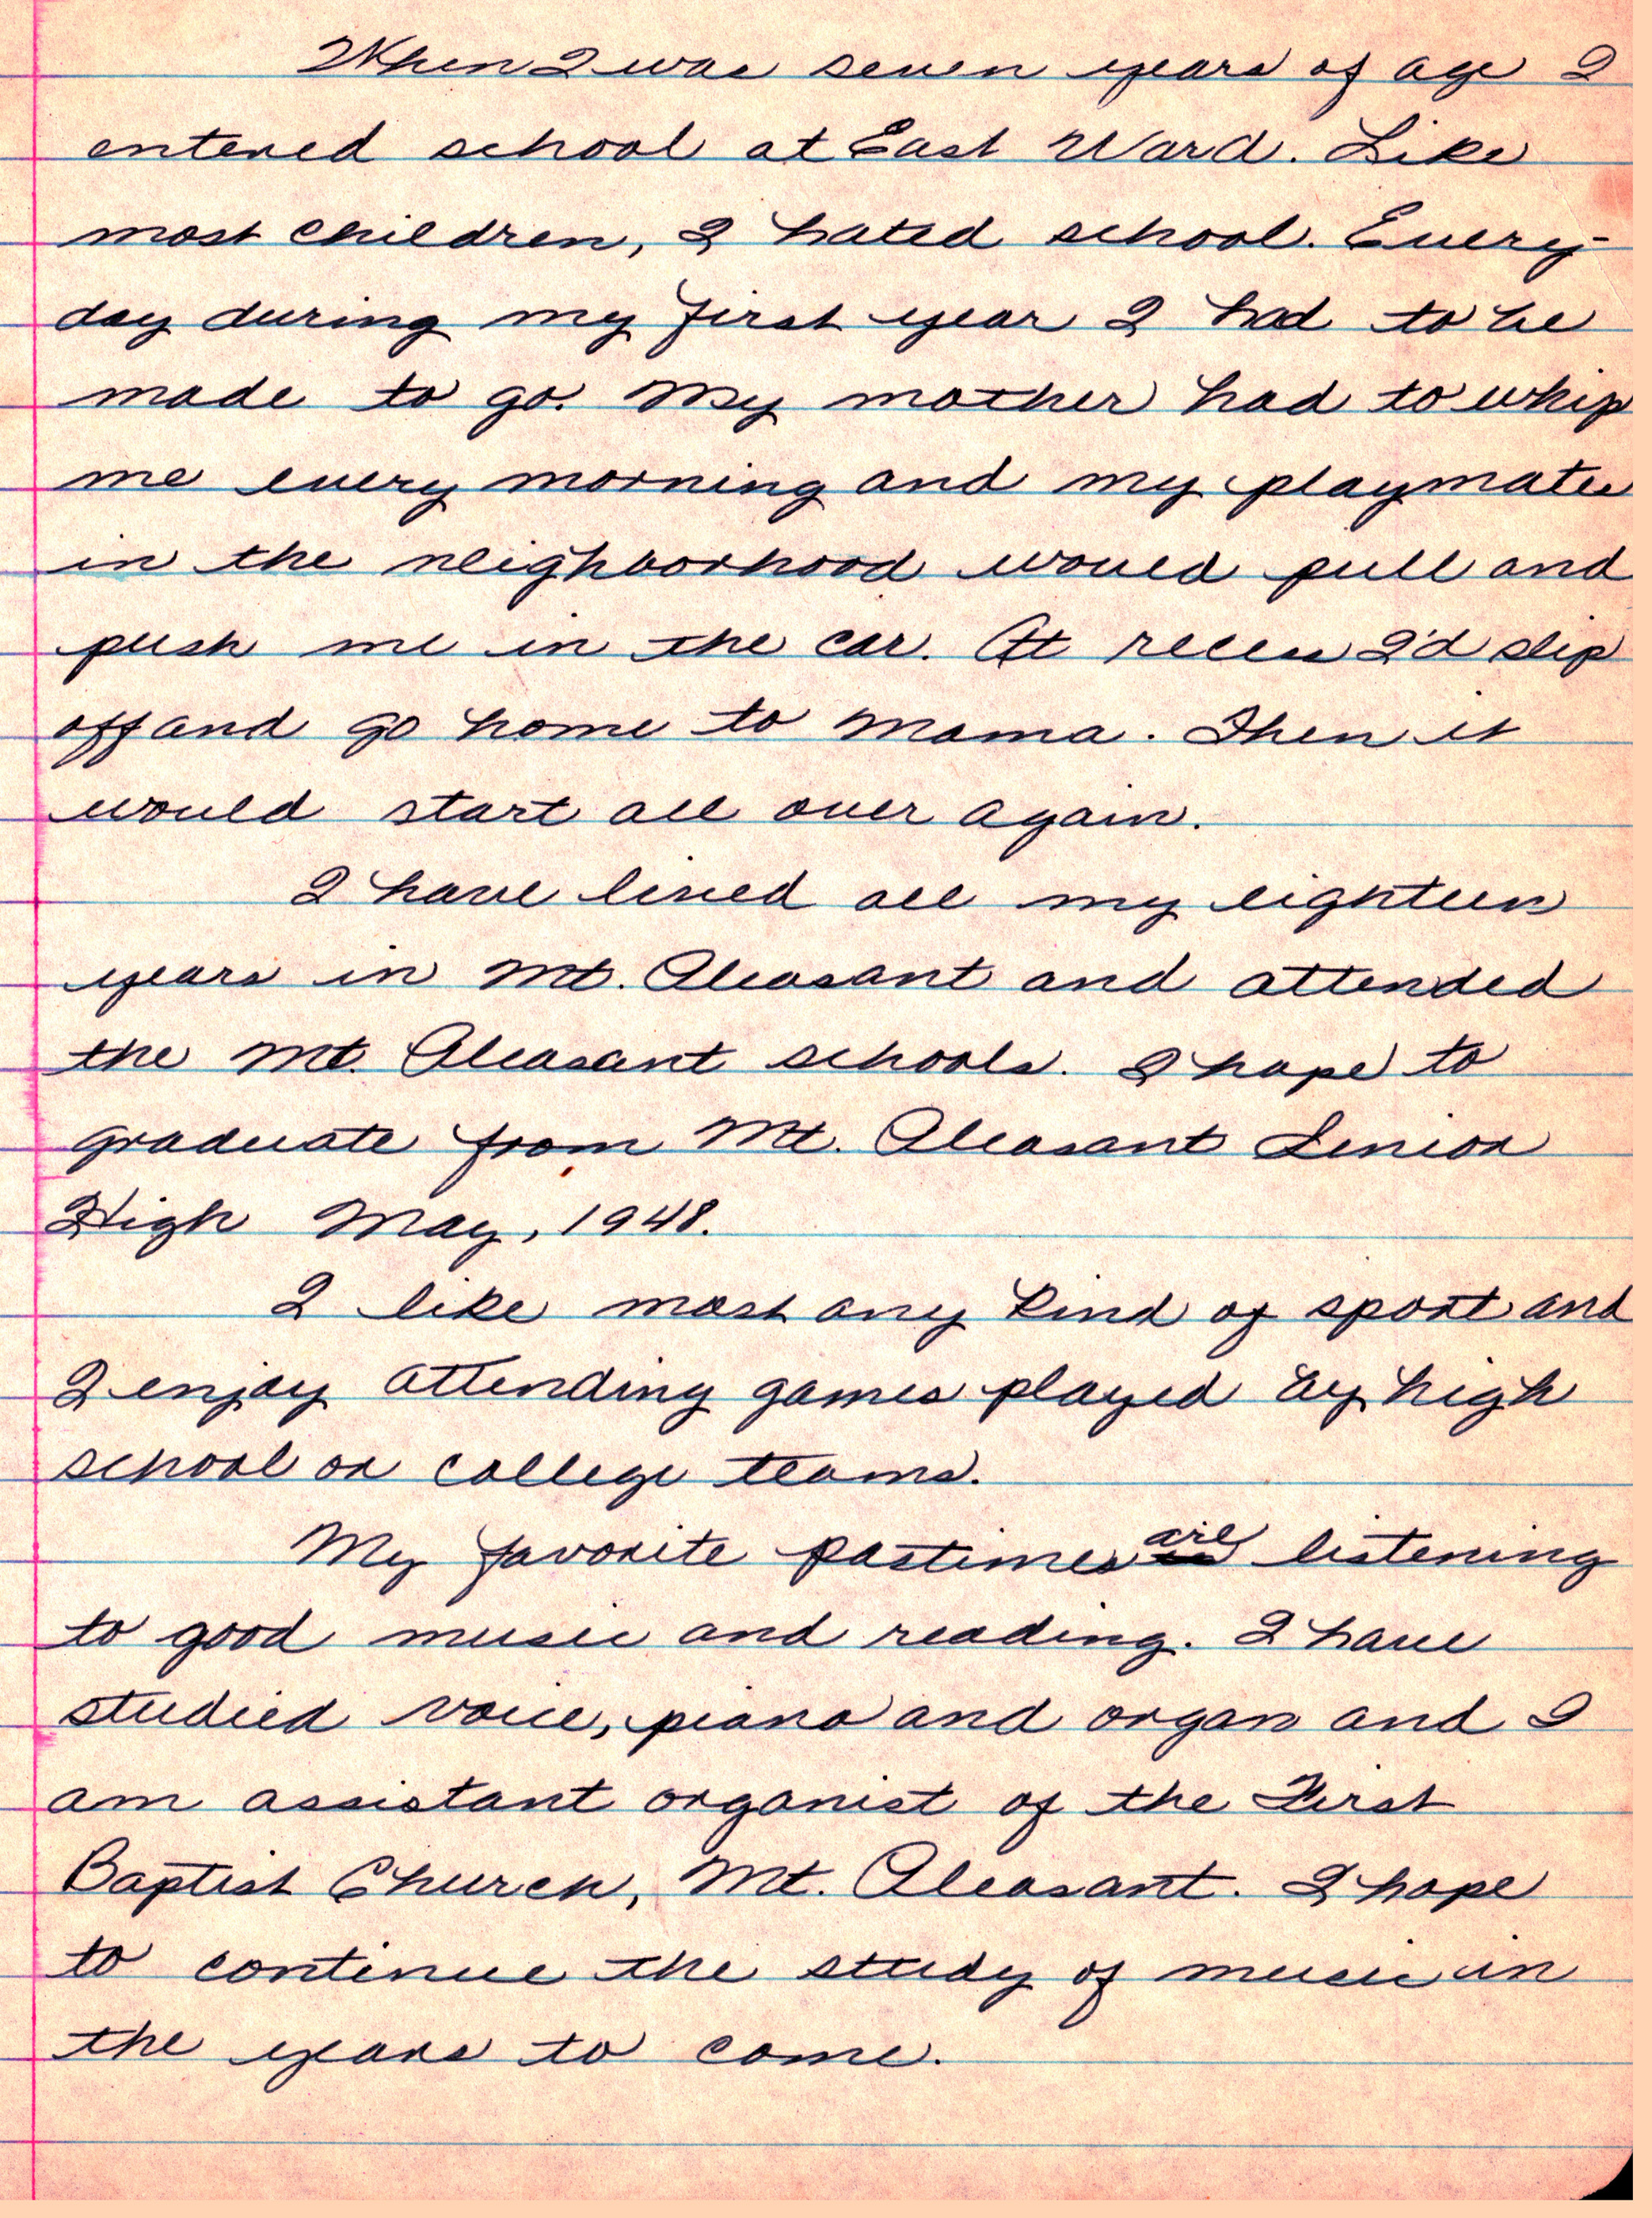 When I was seven years of age I
entered school at East Ward. Like
most children, I hated school. Every-
day during my first year I had to be
made to go. My mother had to whip
me every morning and my playmates
in the neighborhood would pull and
push me in the car. At recess I'd slip
off and go home to Mama. Then it
would start all over again.
I have lived all my eighteen
years in Mt. Pleasant and attended
the Mt. Pleasant schools. I hope to
graduate from Mt. Pleasant Senior
High May, 1948.
I like most any kind of sport and
I enjoy attending games played by high
school or college teams.
My favorite pastimes are listening
to good music and reading. I have
studied voice, piano and organ and I
am assistant organist of the First
Baptist Church, Mt. Pleasant. I hope
to continue the study of music in
the years to come.